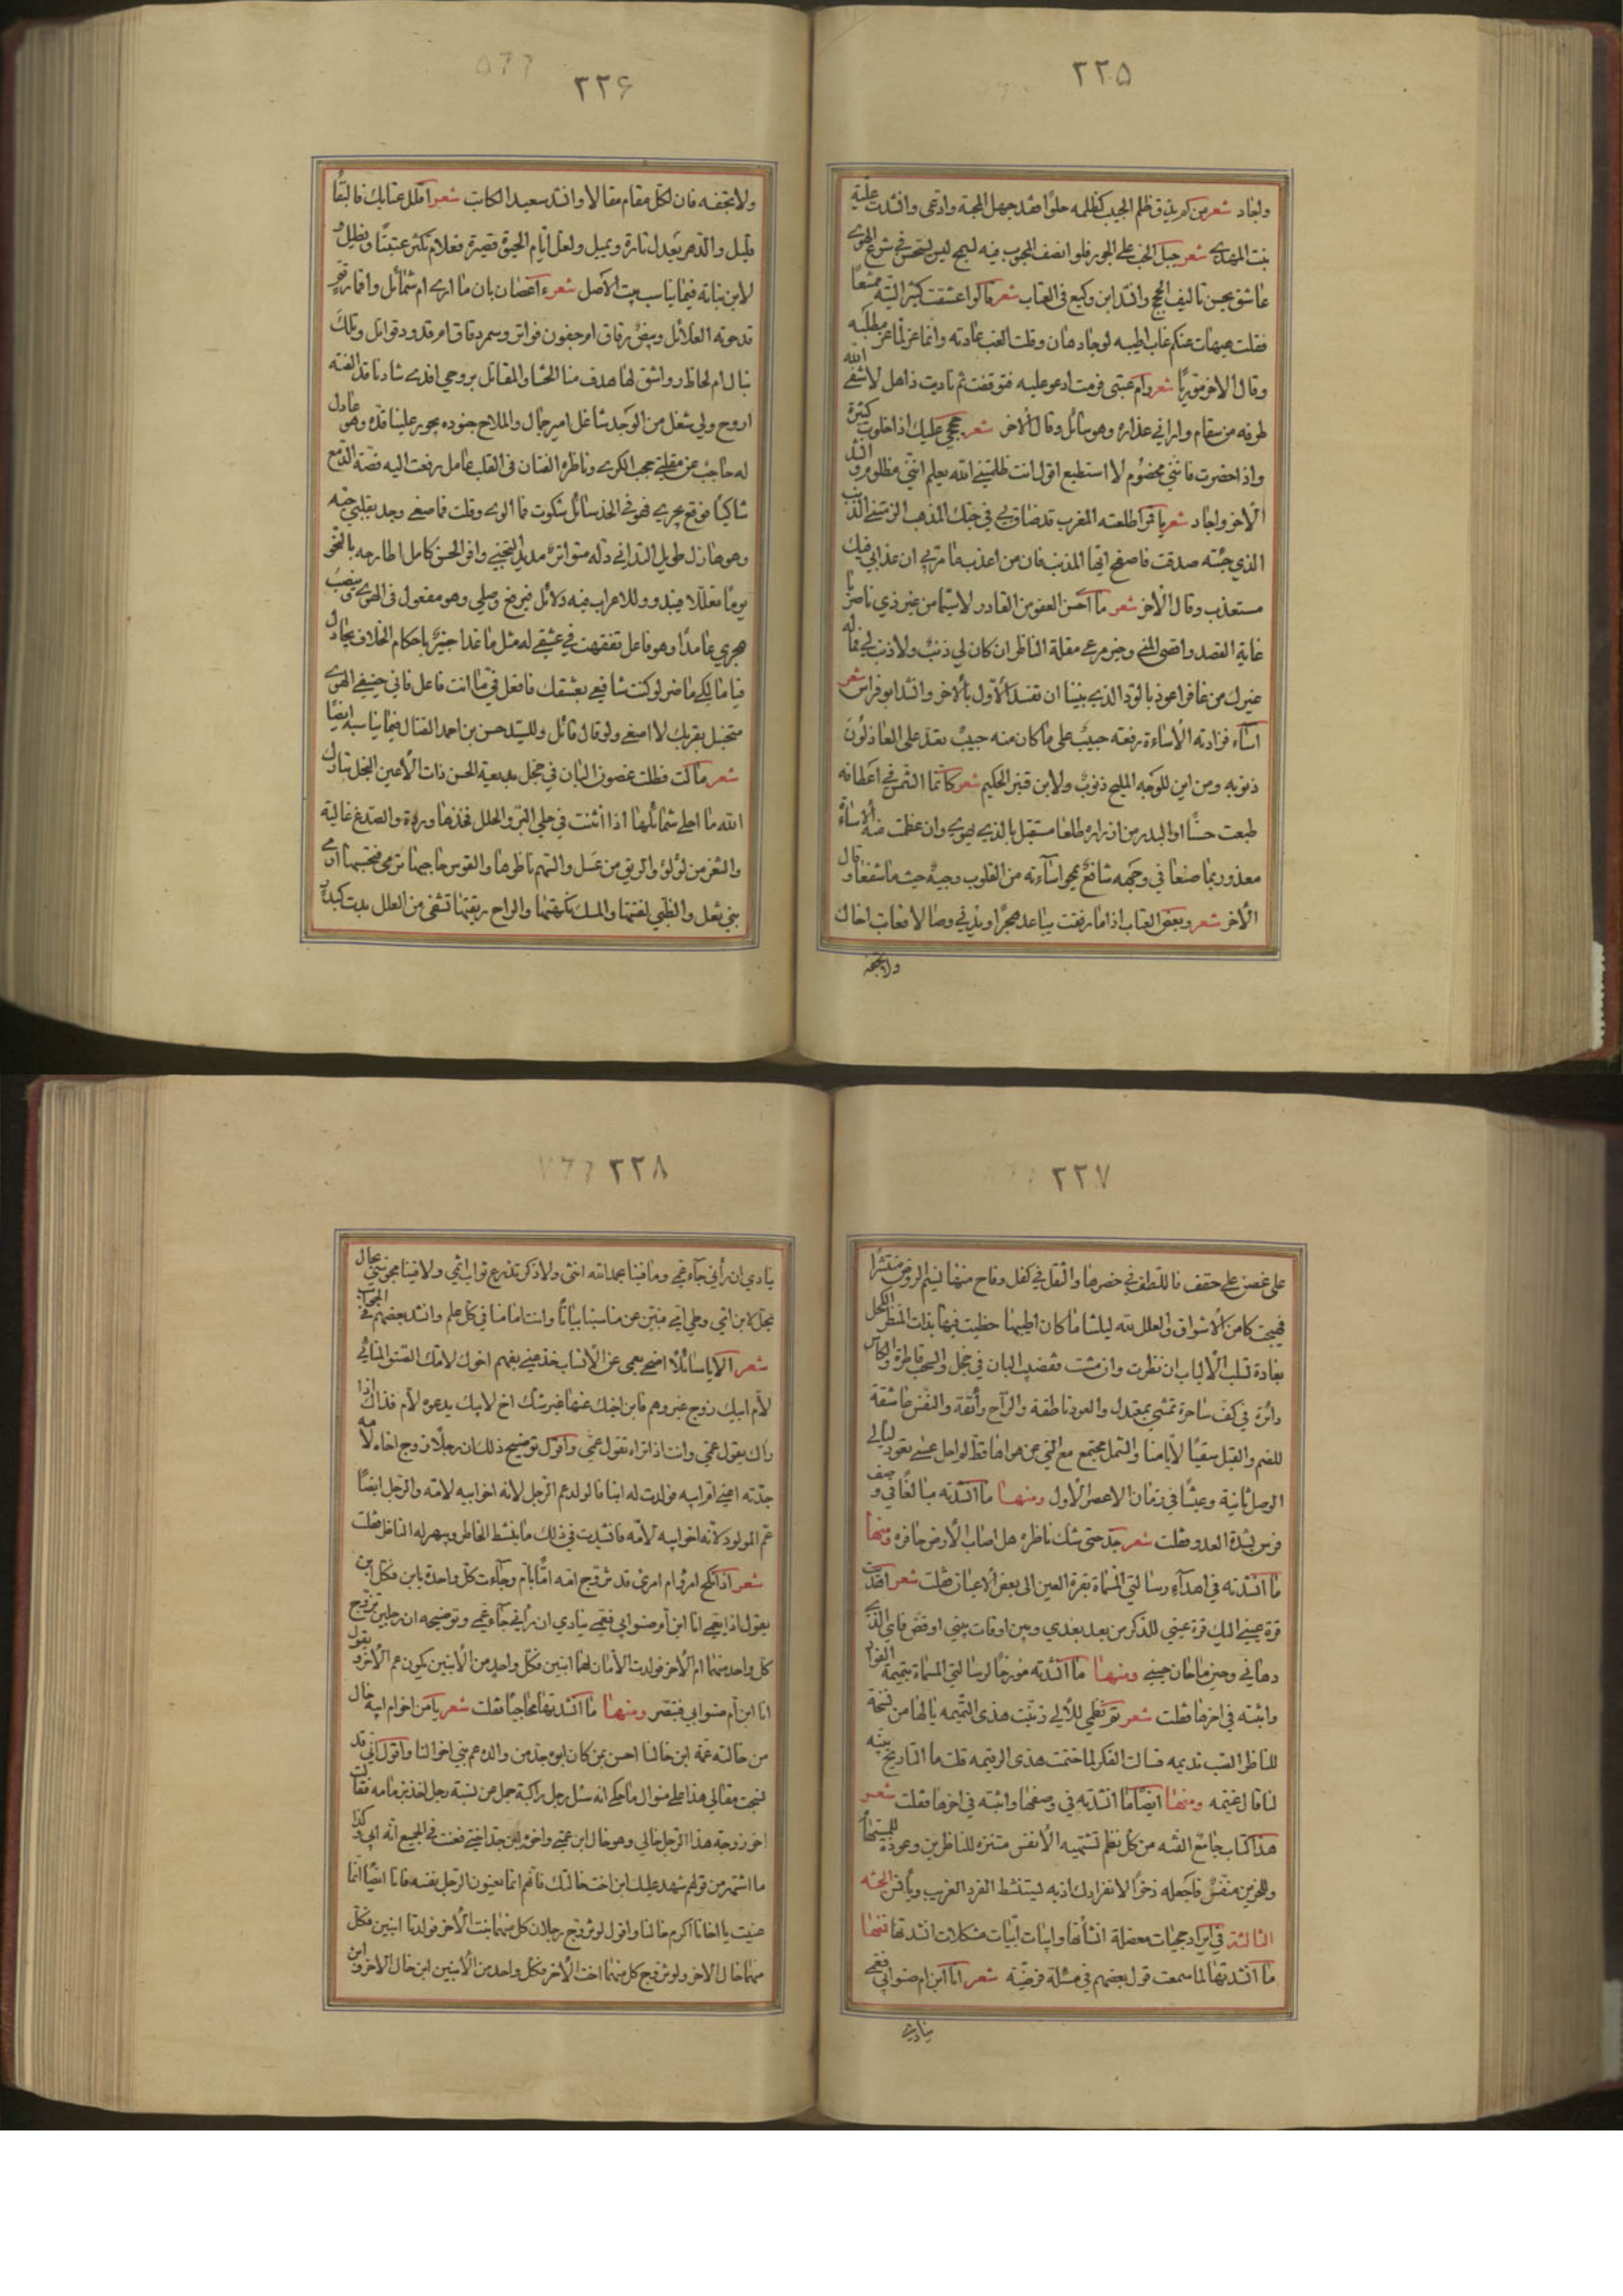 ٢٢٥
ولجاد شعر من لم يذق ظلم الحبيب كظلمه حلوا فقد جهل المحبة وادعى وانشدت علية
بنت المهدي شعر جبل الحب على الجور فلو انصف المحبوب فيه لسمج ليس يستحسن في شرع الهوى
عاشق يحسن تاليف الحجج وانشد ابن وكيع في العتاب شعر قالوا عشقت كثير التيه ممتنعا
فقلت هيهات عنكم غاب اطيبه لو جاد هان وقلت العتب عادته وانما عز لما عز مطلبه
وقال الاخر موريا شعر رام عتبى فرمت ادعو عليه فتوقفت ثم ناديت ذاهل لا شفى الله
طرفه من سقام واراني عذاره وهو سائل وقال الاخر شعر حججي عليك اذا خلوت كثيرة
واذا حضرت فانني مخصوم لا استطيع اقول انت ظلمتني الله يعلم انني مظلوم وانشد
الاخر واجاد شعر يا قمرا طلعته المغرب قد ضاق بي في حبك المذهب الزمتني الذنب
الذي جئته صدقت فاصفح ايها المذنب فان من اعذب ما مر بي ان عذابي فيك
مستعذب وقال الاخر شعر ما احسن العفو من القادر لا سيما من غير ذي ناصر يا
غاية القصد واقصى المنى وخير مرعى مقلة الناظر ان كان لي ذنب ولا ذنب لي فما له
غيرك من غافر اعوذ بالود الذي بيننا ان تفسد الاول بالاخر وانشد ابو فراس شعر
اساء فزادته الاساءة رفعته حبيب على ما كان منه حبيب يعد على العاذلون
ذنوبه ومن اين للوجه المليح ذنوب ولابن قنبر الحكيم شعر كانما الشمس في اعطافه
طبعت حسنا او البدر من ازراره طلعا مستقبل بالذي يهوى وان عظمت منه الاساءة
معذور بما صنعا في وجهه شافع يمحو اساءته من القلوب وجيه حيث ما شفعا وقال
الاخر شعر وبعض العتاب اذا ما رفقت يباعد هجرا ويدني وصالا فعاتب اخاك
ولا تجفه
٢٢۶
ولا تجفه فان لكل مقام مقالا وانشد سعيد الكاتب شعر اقلل عتابك فالبقا
قليل والدهر يعدل تارة ويميل ولعل ايام الحيوة قصيرة فعلام تكثر عتبنا وتطيل و
لابن نباته فيما يناسب بيت الاصل شعر ءاغصان بان ما ارى ام شمائل واقمار تم
قد حوته الغلائل وبيض رقاق ام جفون فواتر وسمر دقاق ام قدود قواتل وتلك
نبال ام لحاظ رواشق لها هدف منا الحشا والمقاتل بروحي افدي شادنا قد الفته
اروح ولي شغل من الوجد شاغل امير جمال والملاح جنوده يجور علينا قده وهو عادل
له حاجب عن مقلتي حجب الكرى وناظره الفتان في القلب عامل رفعت اليه قصة الدمع
شاكيا فوقع يجري فهو في الخد سائل شكوت فما الوى وقلت فما صغى وجد بقلبي حبه
وهو هازل طويل التداني دله متواتر مديد التجني وافر الحسن كامل اطارحه بالنحو
يوما تعللا فيبدو وللاعراب فيه دلائل فيرفع وصلي وهو مفعول في الهوى وينصب
هجري عامدا وهو فاعل تفقهت في عشقي له مثل ما غدا خبيرا باحكام الخلاف يجادل
فيا مالكي ما ضر لو كنت شافعي بعشقك فافعل في ما انت فاعل فاني حنيفي الهوى
متحنبل بقربك لا اصغي ولو قال قائل وللسيد حسن بن احمد القتال فيما يناسبه ايضا
شعر مالت فظلت غصون البان في خجل بديعة الحسن ذات الاعين النجل تبارك
الله ما احلى شمائلها اذا انثنت في حلي التبر والحلل فخدها وردة والصدغ غالية
والثغر من لؤلؤ والريق من عسل والسهم ناظرها والقوس حاجبها ترمي فتحسبها ادمى
بني ثعل والظبي لفتتها والمسك نكهتها والراح ريقتها تشفي من العلل بدت كبدر
٢٢٧
على غصن على حقف فاللطف في خصرها والثقل في كفل وفاح منها نسيم الروض منتشرا
فهيجت كامن الاشواق والعلل لله ليلتنا ما كان اطيبها حظيت فيها بذات المنظر الكحل
بغادة تسلب الالباب ان نظرت وان مشت فقضيب البان في خجل والسحب قاطرة والكأس
دائرة في كف ساحرة تمشي بمعتدل والعود ناطقة والراح رائقة والنفس عاشقة
للضم والقبل سقيا لايامنا والشمل مجتمع مع التي عن هواها قط لم احل عسى تعود ليالي
الوصل ثانية وعيشنا في زمان الاعصر الاول ومنها ما انشدته مبالغا في وصف
فرس بشدة العدو فقلت شعر جد حتى شك ناظره هل اصاب الارض حافره ومنها
ما انشدته في اهداء رسالتي المسماة بقرة العين الى بعض الاعيان فقلت شعر اهديت
قرة عيني اليك قرة عيني للذكر من بعد بعدي وبين اوقات بيني اوفض فاي الذي
دهاني وحين ما حان حيني ومنها ما انشدته مورخا لرسالتي المسماة بتميمة الفواد
واثبته في اخرها فقلت شعر تم نظمي للالي زينت هذي التميمه يا لها من نسخة
للناظر القلب نديمه فسالت الفكر لما ختمت هذي الرقيمه قلت ما التاريخ بينه
لنا قال غنيمه ومنها ايضا ما انشدته في وصفها واثبته في اخرها فقلت شعر
هذا كتاب جامع الفته من كل نظم تشتهيه الانفس متنزه للناظرين وعوذة للمستهام
وللحزين منفس فاجعله ذخرا لانفرادك اذ به ليتنشط الفرد الغريب ويأنس الجنة
الثالثة في ايراد حجيات معضلة انشأتها وابيات ابيات مشكلات انشدتها فمنها
ما انشدتها لما سمعت قول بعضهم في مسئلة فرضية شعر انا ابن ام صنو ابي فعمي
ينادي
٢٢٨
ينادي ان رأني جاء عمي وما فينا بحمد الله انثى ولا ذكر تدرع ثواب اثمي ولا فينا مجوسي بحال
نجل لابن اخي وحل ابي مبين عن مناسبنا بيانا وانت امامنا في كل علم وانشد بعضهم في الجواب
شعر الا يا سائلا اضحى يعمى عن الانساب خذ مني بفهم اخوك لامك القنو المنافي
لام ابيك زوج غير وهم فابن اخيك عنها غير شك اخ لابيك يدعوه لام فذاك اذا
راك يقول عمي وانت اذا تراه تقول عمي واقول توضيح ذلك ان رجلا زوج اخاه لامه
جدته اعني ام ابيه فولدت له ابنا فالولد عم الرجل لانه اخو ابيه لامه والرجل ايضا
عم المولود لانه اخو ابيه لامه فانشدت في ذلك ما ينشط الخاطر ويبهر له الناظر فقلت
شعر اذا نكح امرؤ ام امرئ قد تزوج امه اما بام وجاءت كل واحدة بابن فكل ابن
يقول اذا بعمي انا ابن ام صنو ابي فعمي ينادي ان رأني جاء عمي وتوضيحه ان رجلين تزوج
كل واحد منهما ام الاخر فولدت الامان لهما ابنين فكل واحد من الابنين يكون عم الاخر ويقول
انا ابن ام صنو ابي فتبصر ومنها ما انشدتها محاجيا فقلت شعر يا من اخو ام ابيه خال
من خالته عمة ابن خالنا احسن بمن كان ابوه جد من والده عم بني اخوالنا واقول اني قد
نسجت مقالي هذا على منوال ما حكي انه سئل رجل راكبة جمل عن نسبة رجل اخذ بزمامه فقالت
اخو زوجة هذا الرجل خالي وهو خال ابن عمتي واخوه ابن جد اختي فعنت في الجميع انه ابي وكذا
ما اشتهر من قولهم شهد عليك ابن اخت خالتك فانهم انما يعنون الرجل نفسه فانا ايضا انما
عنيت يا اخانا اكرم خالنا واقول لو تزوج رجلان كل منهما بنت الاخر فولدتا ابنين فكل
منهما خال الاخر ولو تزوج كل منهما اخت الاخر فكل واحد من الابنين ابن خال الاخر وابن